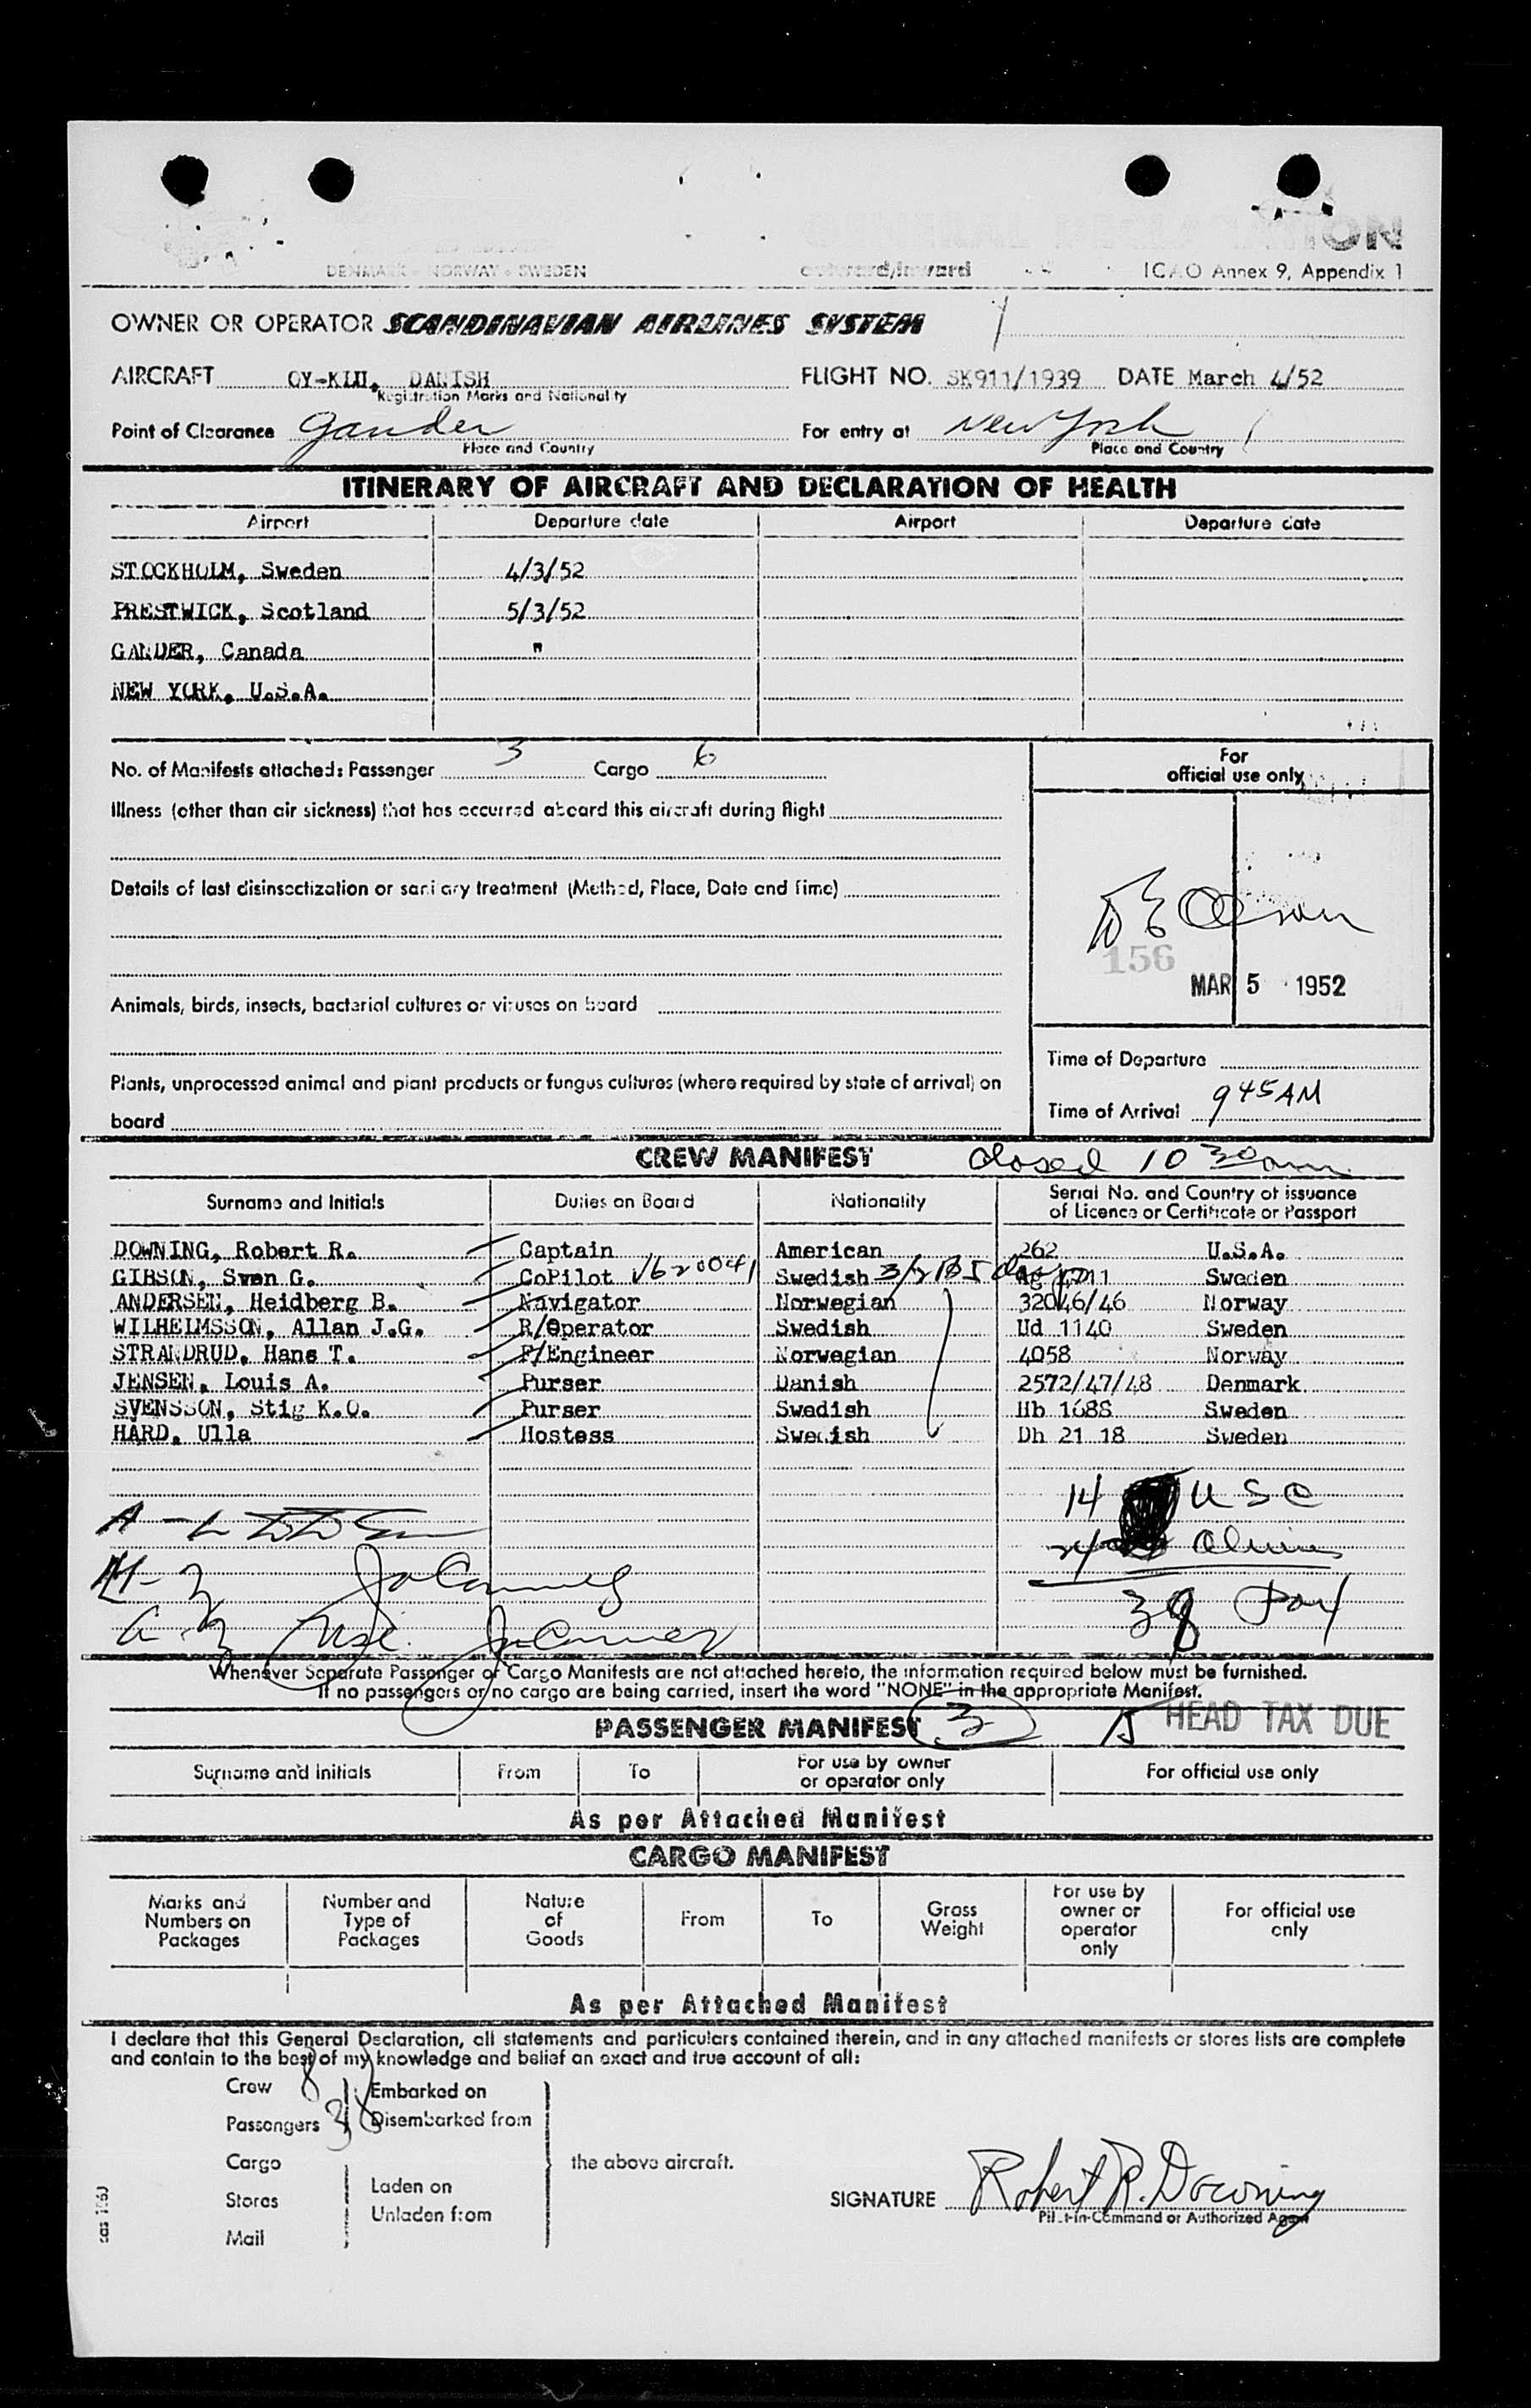 DENMARK • NORWAY • SWEDEN outward/inward ICAO Annex 9, Appendix 1
OWNER OR OPERATOR SCANDINAVIAN AIRLINES SYSTEM
AIRCRAFT OY-KLU, DANISH FLIGHT NO. SK911/1939 DATE March 4/52
Registration Marks and Nationality
Point of Clearance Gander For entry at New York
Place and Country Place and Country
ITINERARY OF AIRCRAFT AND DECLARATION OF HEALTH
Airport Departure date Airport Departure date
STOCKHOLM, Sweden 4/3/52
PRESTWICK, Scotland 5/3/52
GANDER, Canada "
NEW YORK, U.S.A.
No. of Manifests attached: Passenger 3 Cargo 6
For
official use only
Illness (other than air sickness) that has occurred aboard this aircraft during flight
Details of last disinsectization or sanitary treatment (Method, Place, Date and Time)
156
MAR 5 1952
Animals, birds, insects, bacterial cultures or viruses on board
Time of Departure
Plants, unprocessed animal and plant products or fungus cultures (where required by state of arrival) on
board
Time of Arrival 945 AM
CREW MANIFEST closed 10 30 am
Surname and Initials Duties on Board Nationality Serial No. and Country of issuance
of Licence or Certificate or Passport
DOWNING, Robert R. Captain American 262 U.S.A.
GIBSON, Sven G. CoPilot Swedish Sweden
ANDERSEN, Heidberg B. Navigator Norwegian 32046/46 Norway
WILHELMSSON, Allan J.G. R/Operator Swedish Ud 1140 Sweden
STRANDRUD, Hans T. F/Engineer Norwegian 4058 Norway
JENSEN, Louis A. Purser Danish 2572/47/48 Denmark
SVENSSON, Stig K.O. Purser Swedish Hb 1688 Sweden
HÅRD, Ulla Hostess Swedish Dh 21 18 Sweden
14 USC
24 Aliens
38 Pax
Whenever Separate Passenger or Cargo Manifests are not attached hereto, the information required below must be furnished.
If no passengers or no cargo are being carried, insert the word "NONE" in the appropriate Manifest.
PASSENGER MANIFEST 3 15 HEAD TAX DUE
Surname and initials From To For use by owner
or operator only For official use only
As per Attached Manifest
CARGO MANIFEST
Marks and
Numbers on
Packages
Number and
Type of
Packages
Nature
of
Goods
From
To
Gross
Weight
For use by
owner or
operator
only
For official use
only
As per Attached Manifest
I declare that this General Declaration, all statements and particulars contained therein, and in any attached manifests or stores lists are complete
and contain to the best of my knowledge and belief an exact and true account of all:
Crew 8 Embarked on
Passengers 38 Disembarked from
Cargo the above aircraft.
Stores Laden on
Unladen from
Mail
SIGNATURE Robert R. Downing
Pilot-in-Command or Authorized Agent